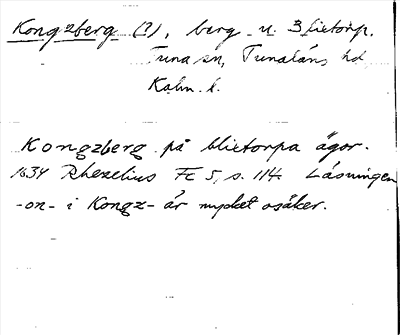 Kongzberg (?), berg u. Blietorp.
Tuna sn, Tunaläns hd
Kalm. l.
Kongzberg på blietorpa ägor.
1634 Rhezelius Fc 5, s. 114. Läsningen
-on- i Kongz- är mycket osäker.